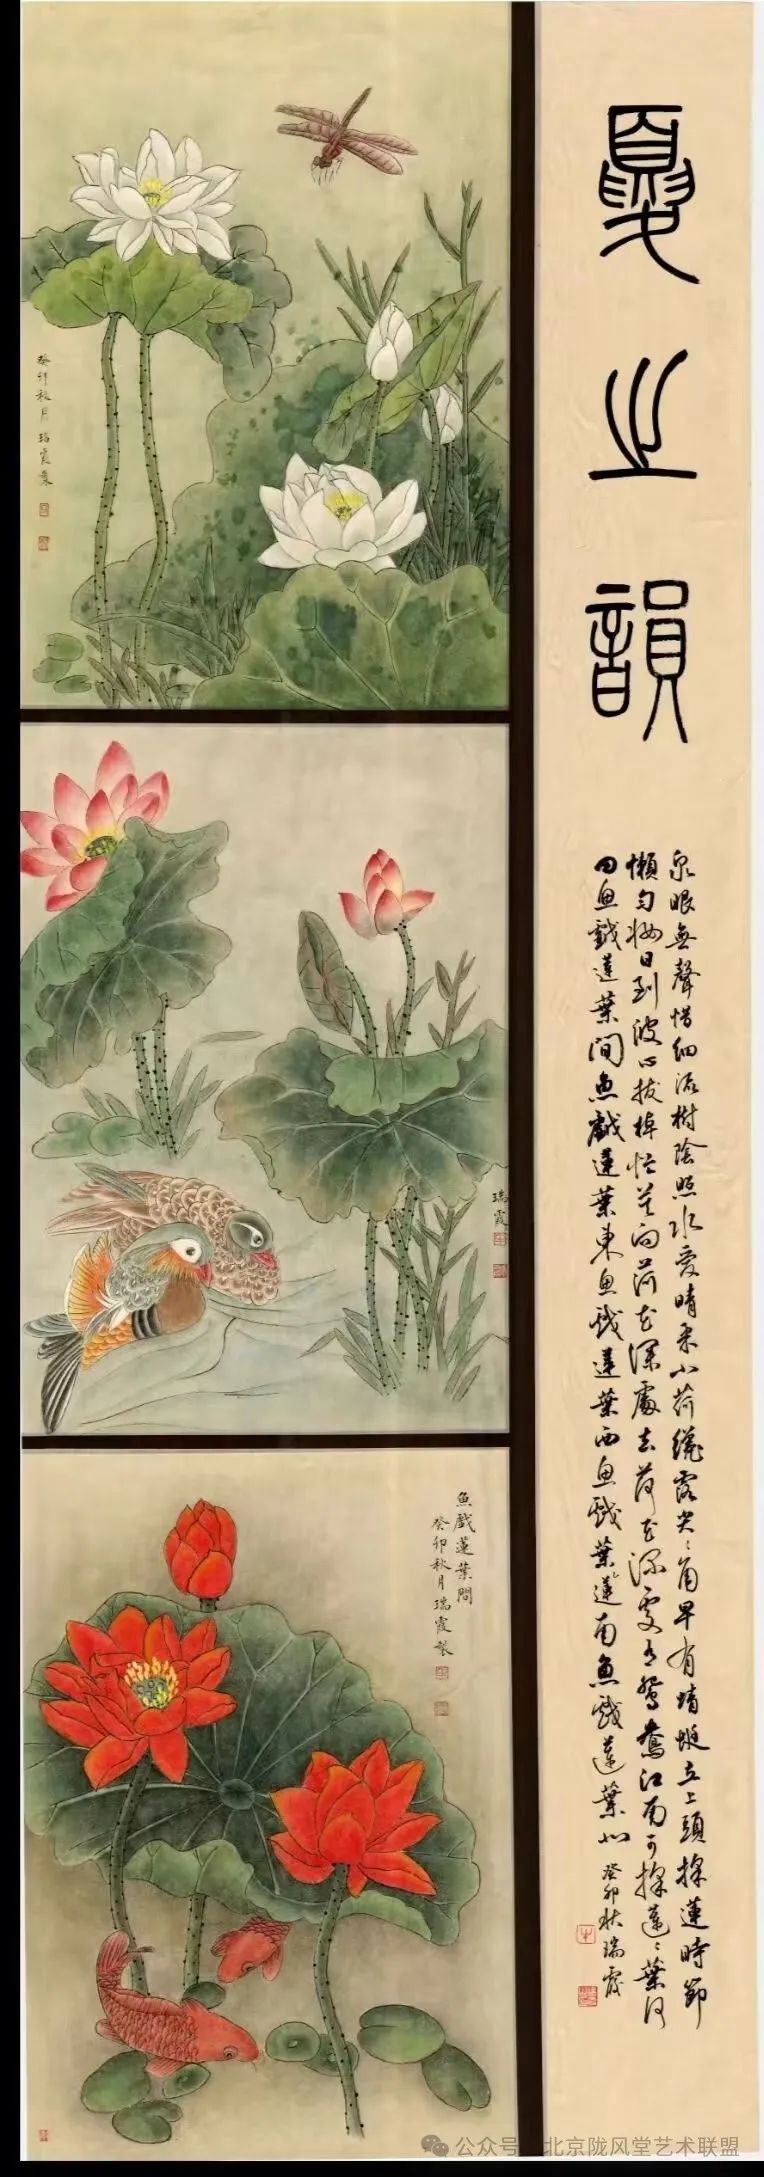 夏之韻
泉眼無聲惜細流樹陰照水愛晴柔小荷纔露尖々角早有蜻蜓立上頭採蓮時節
懶勻妝日到波心撥棹忙莫向荷花深處去荷花深處有鴛鴦江南可採蓮々葉何
田魚戲蓮葉間魚戲蓮葉東魚戲蓮葉西魚戲葉蓮南魚戲蓮葉北
癸卯秋瑞霞
癸卯秋月瑞霞製
瑞霞
魚戲蓮葉間
癸卯秋月瑞霞製
公众号 · 北京陇风堂艺术联盟